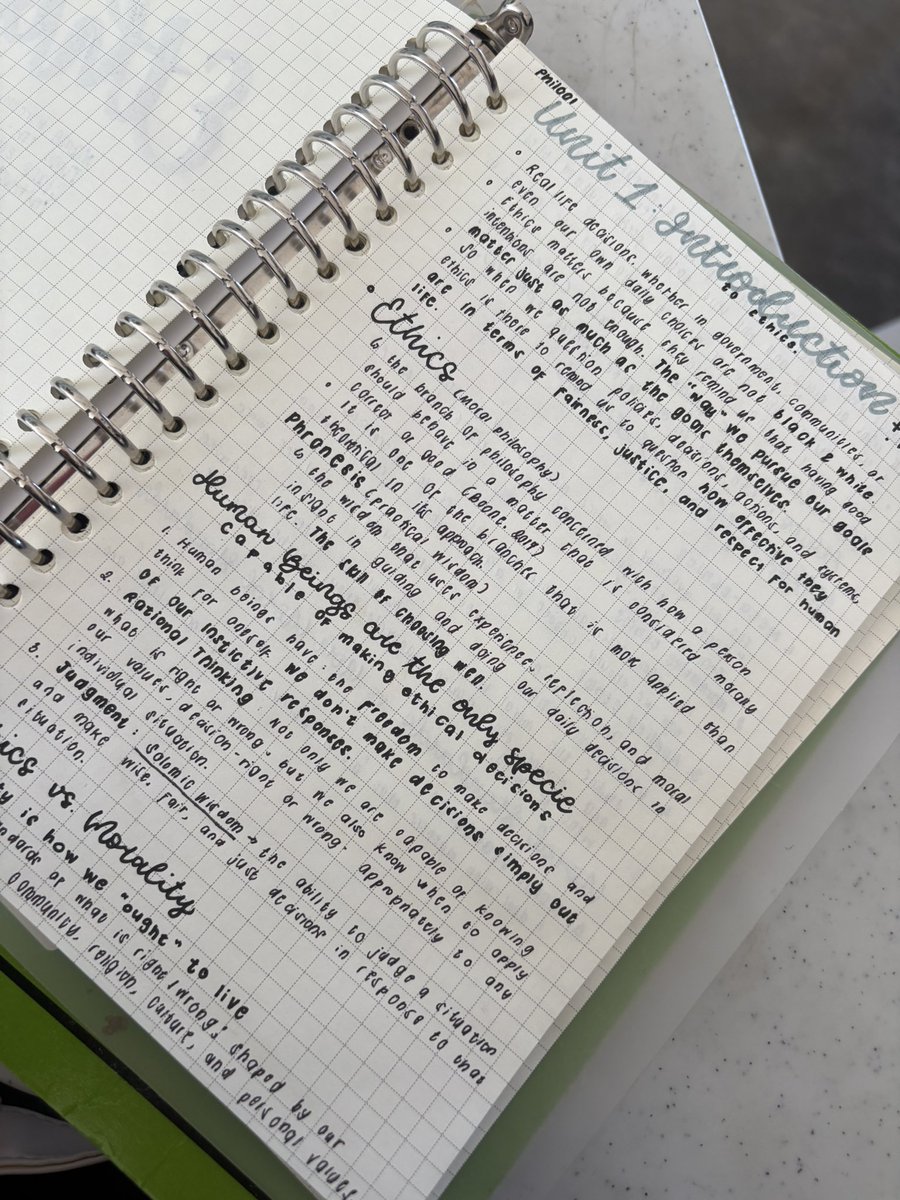 Phil001
Unit 1: Introduction
to Ethics.
• Real life decisions, whether in government, communities, or
even our own daily choices are not black & white.
• Ethics matters because they remind us that having good
intentions are not enough. The "way" we pursue our goals
matter just as much as the goals themselves.
• So when we question policies, decisions, actions, and systems,
ethics is there to remind us to question how effective they
are in terms of fairness, justice, and respect for human
life.
• Ethics (moral philosophy)
↳ the branch of philosophy concerned with how a person
should behave in a matter that is considered morally
correct or good (Ebone, 2017)
• It is one of the branches that is more applied than
theoretical in its approach.
Phronesis (practical wisdom)
↳ the wisdom that uses experience, reflection, and moral
insight in guiding and doing our daily decisions in
life. The skill of choosing well.
Human Beings are the only specie
capable of making ethical decisions
1. Human beings have: the freedom to make decisions and
think for oneself. We don't make decisions simply out
of our instictive responses.
2. Rational Thinking: Not only we are capable of knowing
what is right or wrong, but we also know when to apply
our values, decision-right or wrong; appropriately to any
individual situation.
3. Judgment: Solomic Wisdom → the ability to judge a situation
and make wise, fair, and just decisions in response to that
situation.
ics vs. Morality
ty is how we "ought" to live
ndards of what is right/wrong; shaped by our
community, religion, culture, and personal values